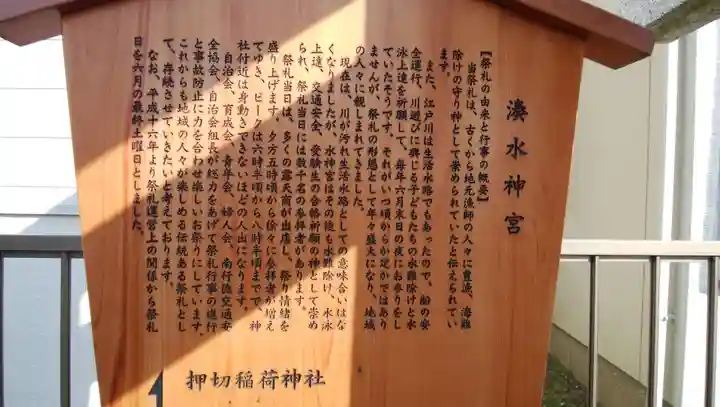 湊水神宮
【祭礼の由来と行事の概要】
当祭礼は、古くから地元漁師の人々に豊漁、海難
除けの守り神として崇められていたと伝えられてい
ます。
また、江戸川は生活水路でもあったので、船の安
全運行、川遊びに興じる子どもたちの水難除けと水
泳上達を祈願して、毎年六月末日の夜にお参りをし
ていたそうです。それがいつ頃からか定かではあり
ませんが、祭礼の形態として年々盛大になり、地域
の人々に親しまれてきました。
現在は、川が汚れ生活水路としての意味合いはな
くなりましたが、水神宮はその後も水難除け、水泳
上達、交通安全、受験生の合格祈願の神として崇め
られ、祭礼当日には数千名の参拝者があります。
祭礼当日は、多くの露天商が出店し、祭り情緒を
盛り上げます。夕方五時頃から徐々に参拝者が増え
てゆき、ピークは六時半頃から八時半頃までで、神
社付近は身動きできないほどの人出になります。
自治会、育成会、青年会、婦人会、南行徳交通安
全協会、自治会組長が総力をあげて祭礼行事の進行
と事故防止に力を合わせ楽しいお祭りにしています。
これからも地域の人々が楽しめる伝統ある祭礼とし
て、存続させていきたいと考えております。
なお、平成十六年より祭礼運営上の関係から祭礼
日を六月の最終土曜日としました。
押切稲荷神社